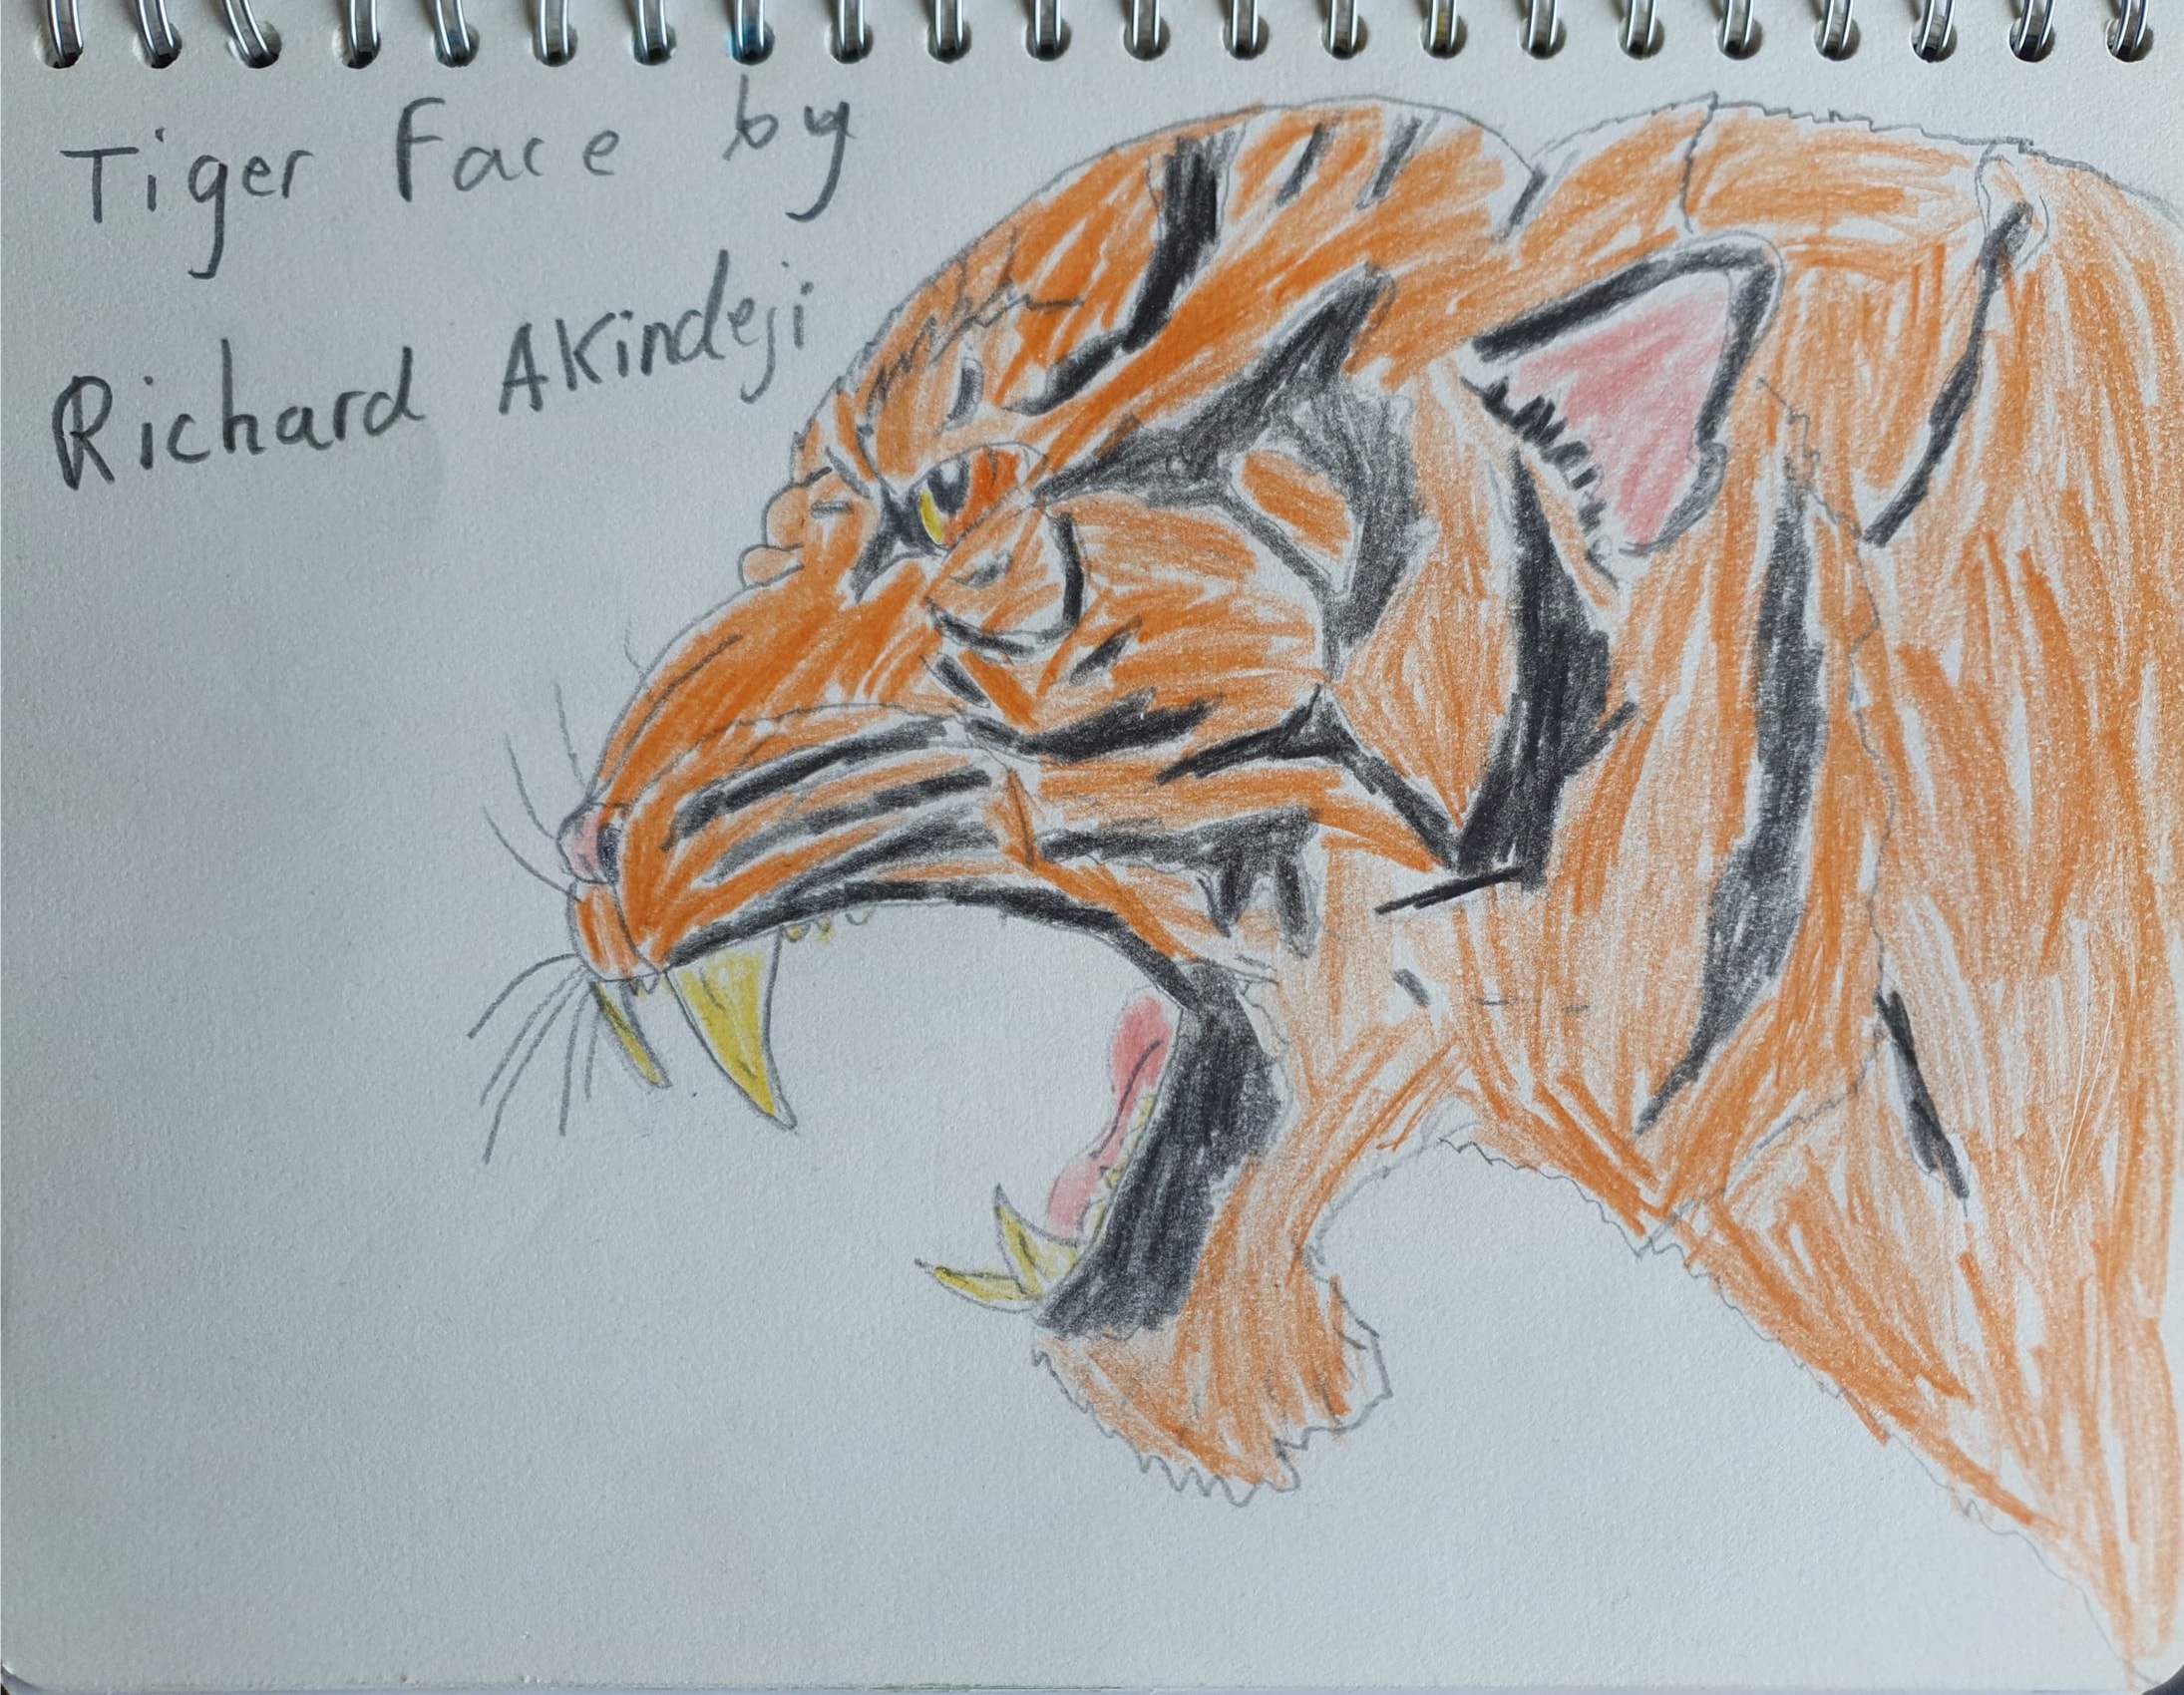 Tiger Face by
Richard Akindeji